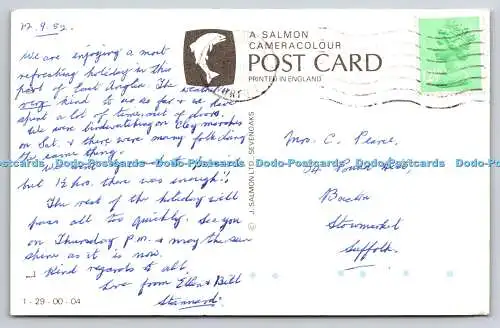 12.9.82.
We are enjoying a most
refreshing holiday in this
part of East Anglia. The weather
very kind to us so far & we have
spent a lot of time out of doors.
We were birdwatching on Cley marshes
on Sat. & there were many folk doing
the same thing.
but 1½ hrs. there was enough!!
The rest of the holiday will
pass all too quickly. See you
on Thursday p.m. & may the sun
shine as it is now.
Kind regards to all.
Love from Ellen & Bill
1-29-00-04
A SALMON
CAMERACOLOUR
POST CARD
PRINTED IN ENGLAND
© J. SALMON LTD., SEVENOAKS
Mrs. C. Pearce,
Bacton
Stowmarket
Suffolk.
Dodo-Postcards Dodo-Postcards Dodo-Postcards Dodo-Postcards Dodo-Postcards Dodo-Postcards